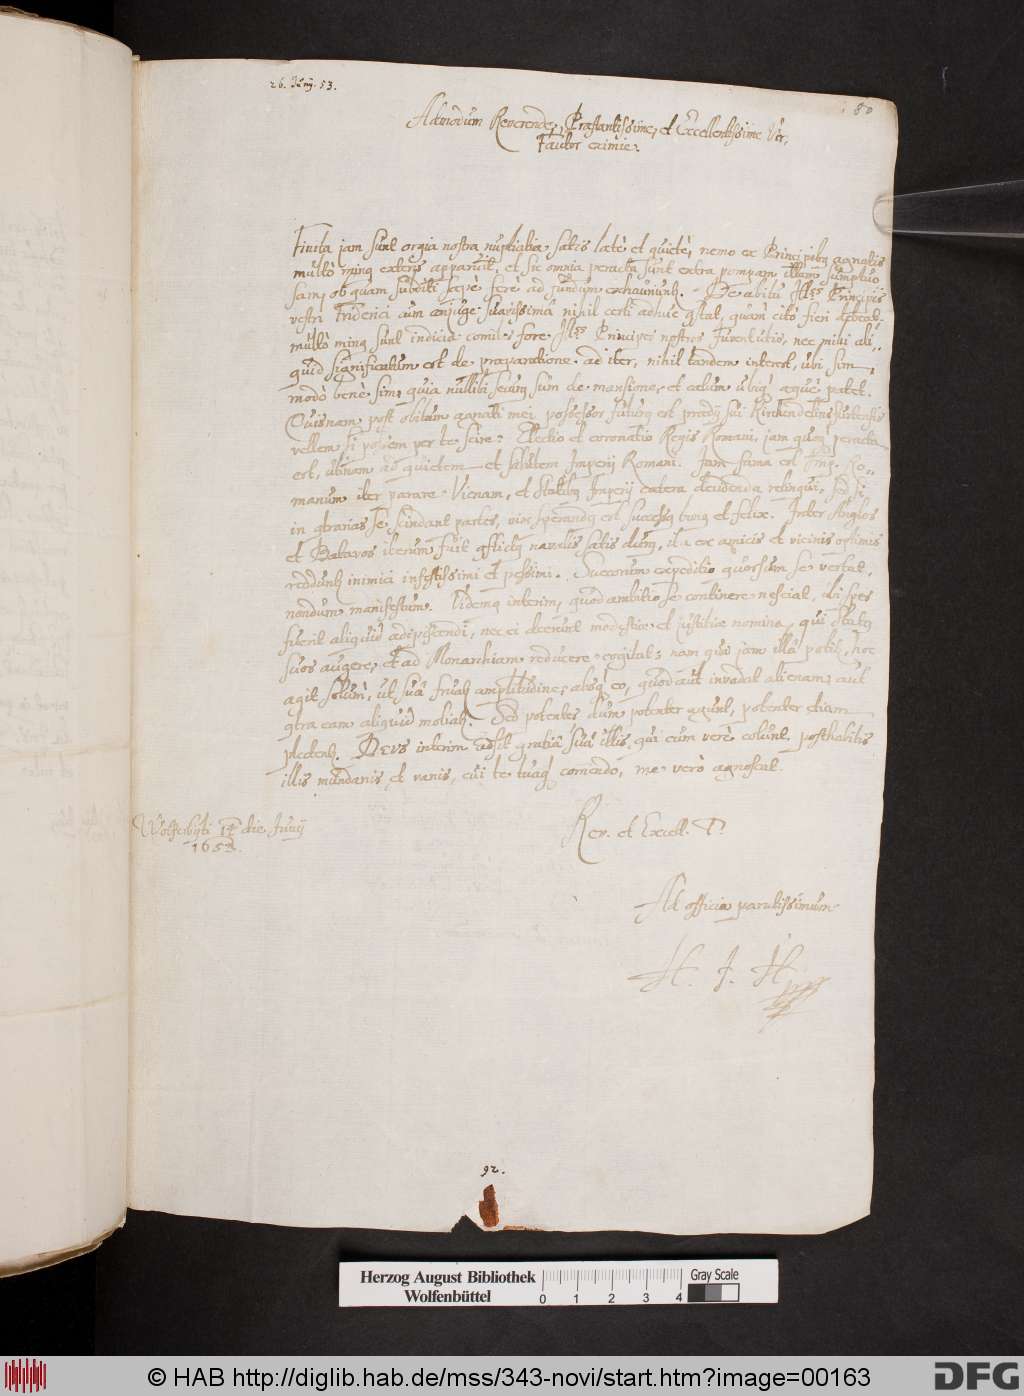 26. Junij. 53.
80
Admodum Reverende, Præstantissime, et Excellentissime Vir,
Fautor eximie.
Finita jam sunt orgia nostra nuptialia satis latè et quietè, nemo ex Principibus agnatis
multò minus exteris apparuit, et sic omnia peracta sunt extra pompam illam sumptuo
sam, ob quam subditi sæpè ferè ad fundum exhauriunt. De abitu Illss Principis
vestri Friderici cum conjuge suavissimâ nihil certi adhuc constat, quam citò fieri debeat.
multò minus sunt indicia comites fore Illss Principes nostros Juventutis, nec mihi ali,,
quid significatum est de præparatione ad iter, nihil tandem interest, ubi sim,
modò benè sim, quia nullibi securus sum de mansione, et cœlum ubique æquè patet.
Quisnam post obitum agnati mei possessor futurus est prædij sui
vellem si possem per te scire? Electio et coronatio Regis Romani, jam quoque peracta
est, utinam ad quietem et salutem Imperij Romani. Jam fama est Imp. Ro,,
manum iter parare Viennam, et Statibus Imperij cætera decidenda relinqui, sed si
in contrarias se scindant partes, vix sperandus est successus et felix. Inter Anglos
et Batavos iterum fuit conflictus navalis satis durus, ita ex amicis et vicinis optimis
redduntur inimici infestissimi et pessimi. Suecorum expeditio quorsum se vertat,
nondum manifestum. Videmus interim, quod ambitio se continere nesciat, ubi spes
fuerit aliquid adipiscendi, nec ei decrunt modestiæ et justitiæ nomina, qui Status
suos augere, et ad Monarchiam reducere cogitat; nam qui jam illâ potitur, hoc
agit solùm, ut suâ fruatur amplitudine, absque eo, quod aut invadat alienam, aut
contra eam aliquid moliatur. Sed potentes dum potenter agunt, potenter etiam
plectentur. DEUS interim adsit gratiâ suâ illis, qui eum verè colunt, posthabitis
illis mundanis et vanis, cui te tuosque commendo, me verò agnoscat
Wolferbyti 14 die Junij
1653.
Rev. et Excell. T.
Ad officia paratissimum
H. J. H
92.
Herzog August Bibliothek
Wolfenbüttel
0 1 2 3 4
Gray Scale
© HAB http://diglib.hab.de/mss/343-novi/start.htm?image=00163
DFG